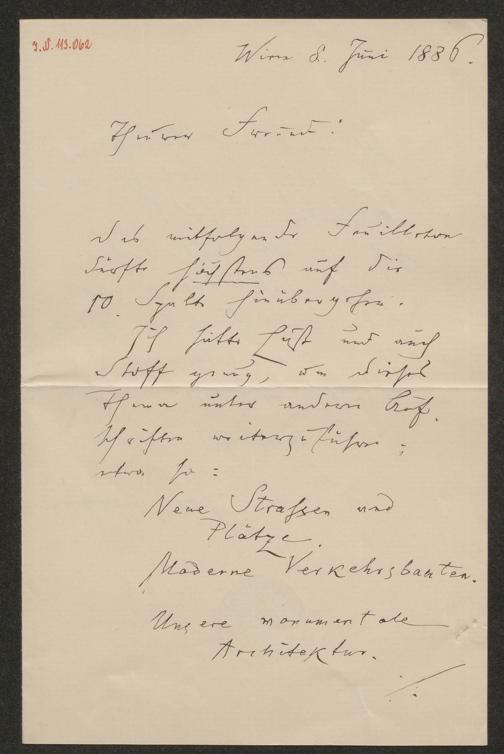 I.N. 113.062
Wien 8. Juni 1886.
Theurer Freund!
Das mitfolgende Feuilleton
dürfte höchstens auf die
10. Spalte hinübergehen.
Ich hätte Lust und auch
Stoff genug, um dieses
Thema unter anderen
schriften weiterzuführen;
etwa so:
Neue Strassen und
Plätze.
Moderne Verkehrsbauten.
Unsere monumentale
Architektur.
./.